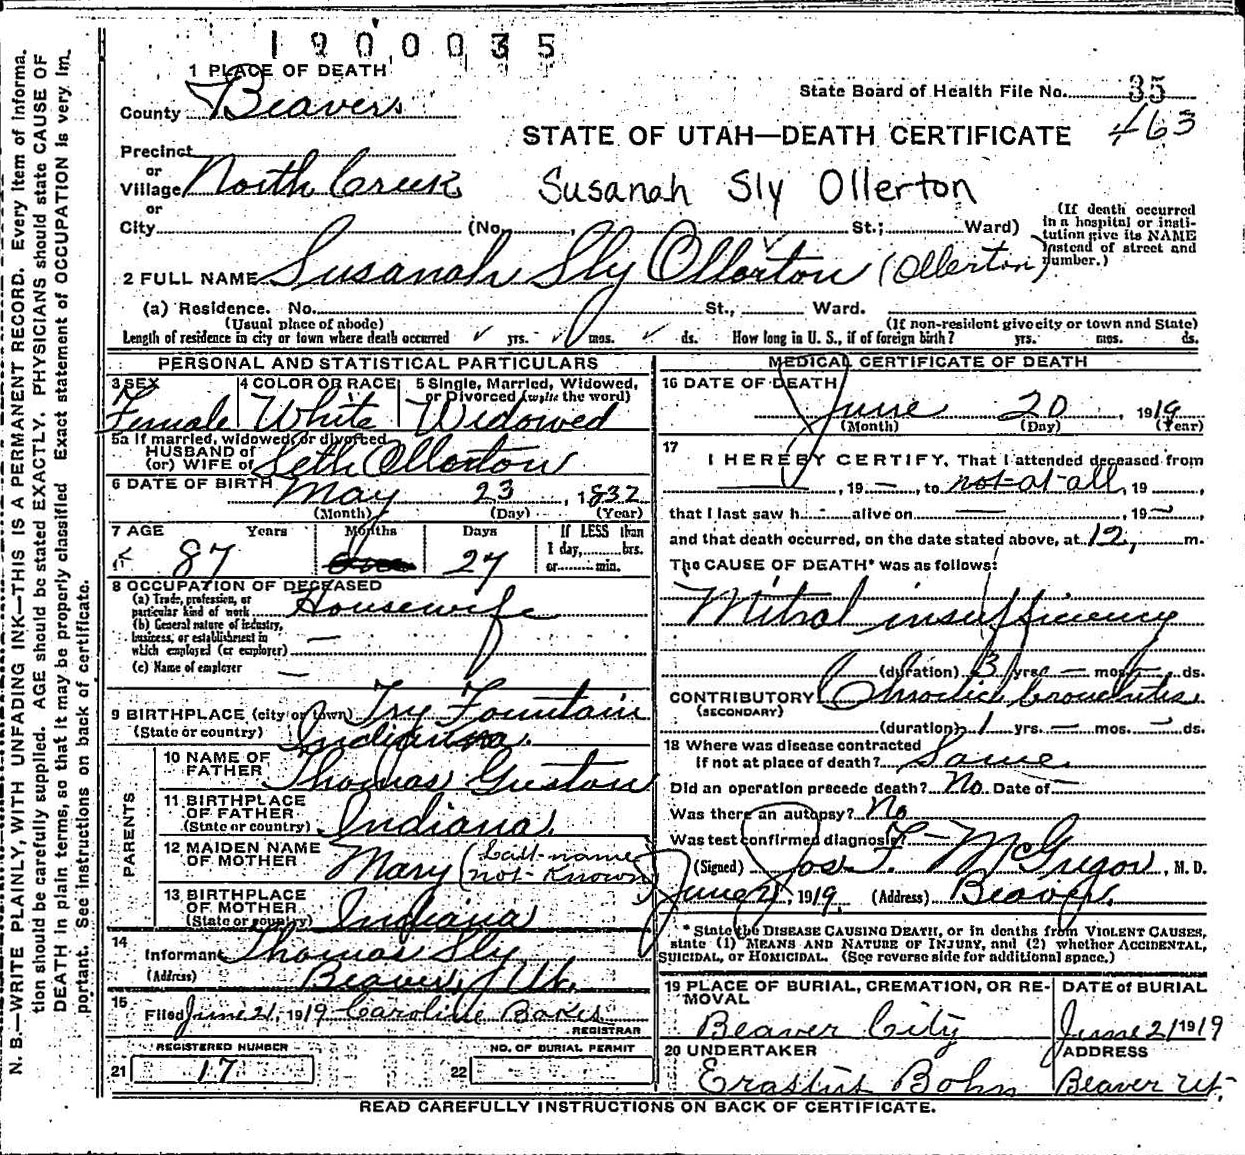 1900035
1 PLACE OF DEATH
County Beaver
State Board of Health File No. 35
463
STATE OF UTAH—DEATH CERTIFICATE
Precinct
or
Village North Creek
Susanah Sly Ollerton
or
City (No. , St.; Ward)
(If death occurred in a hospital or institution give its NAME instead of street and number.)
2 FULL NAME Susanah Sly Ollorton (Ollerton)
(a) Residence. No. St., Ward.
(Usual place of abode) (If non-resident give city or town and State)
Length of residence in city or town where death occurred yrs. mos. ds. How long in U. S., if of foreign birth? yrs. mos. ds.
PERSONAL AND STATISTICAL PARTICULARS
3 SEX 4 COLOR OR RACE 5 Single, Married, Widowed, or Divorced (write the word)
Female White Widowed
5a If married, widowed, or divorced
HUSBAND of
(or) WIFE of Seth Ollorton
6 DATE OF BIRTH May 23, 1832
(Month) (Day) (Year)
7 AGE Years Months Days If LESS than
1 day, hrs.
87 27 or min.
8 OCCUPATION OF DECEASED
(a) Trade, profession, or
particular kind of work Housewife
(b) General nature of industry,
business, or establishment in
which employed (or employer) —
(c) Name of employer —
9 BIRTHPLACE (city or town) Fountain
(State or country) Indiana.
PARENTS
10 NAME OF
FATHER Thomas Guston
11 BIRTHPLACE
OF FATHER
(State or country) Indiana
12 MAIDEN NAME
OF MOTHER Mary (Last name
not known)
13 BIRTHPLACE
OF MOTHER
(State or country) Indiana
14
Informant Thomas Sly
(Address) Beaver, Ut.
15
Filed June 21, 1919 Caroline
REGISTRAR
REGISTERED NUMBER NO. OF BURIAL PERMIT
21 17 22
MEDICAL CERTIFICATE OF DEATH
16 DATE OF DEATH
June 20, 1919
(Month) (Day) (Year)
17
I HEREBY CERTIFY, That I attended deceased from
—, 19 —, to not at all, 19 ,
that I last saw h — alive on —, 19 —
and that death occurred, on the date stated above, at 12, m.
The CAUSE OF DEATH* was as follows:
Mitral insufficiency
(duration) 3 yrs — mos — ds.
CONTRIBUTORY Chronic bronchitis
(SECONDARY)
(duration) 1 yrs. — mos. — ds.
18 Where was disease contracted
if not at place of death? Same
Did an operation precede death? No. Date of —
Was there an autopsy? No
Was test confirmed diagnosis? —
(Signed) Jos. F. McGregor, M. D.
June 21, 1919. (Address) Beaver.
* State the DISEASE CAUSING DEATH, or in deaths from VIOLENT CAUSES,
state (1) MEANS AND NATURE OF INJURY, and (2) whether ACCIDENTAL,
SUICIDAL, or HOMICIDAL. (See reverse side for additional space.)
19 PLACE OF BURIAL, CREMATION, OR RE- DATE of BURIAL
MOVAL
Beaver City June 21 1919
20 UNDERTAKER ADDRESS
Erastus Bohn Beaver Ut.
READ CAREFULLY INSTRUCTIONS ON BACK OF CERTIFICATE.
N. B.—WRITE PLAINLY, WITH UNFADING INK—THIS IS A PERMANENT RECORD. Every item of informa-
tion should be carefully supplied. AGE should be stated EXACTLY. PHYSICIANS should state CAUSE OF
DEATH in plain terms, so that it may be properly classified. Exact statement of OCCUPATION is very im-
portant. See instructions on back of certificate.